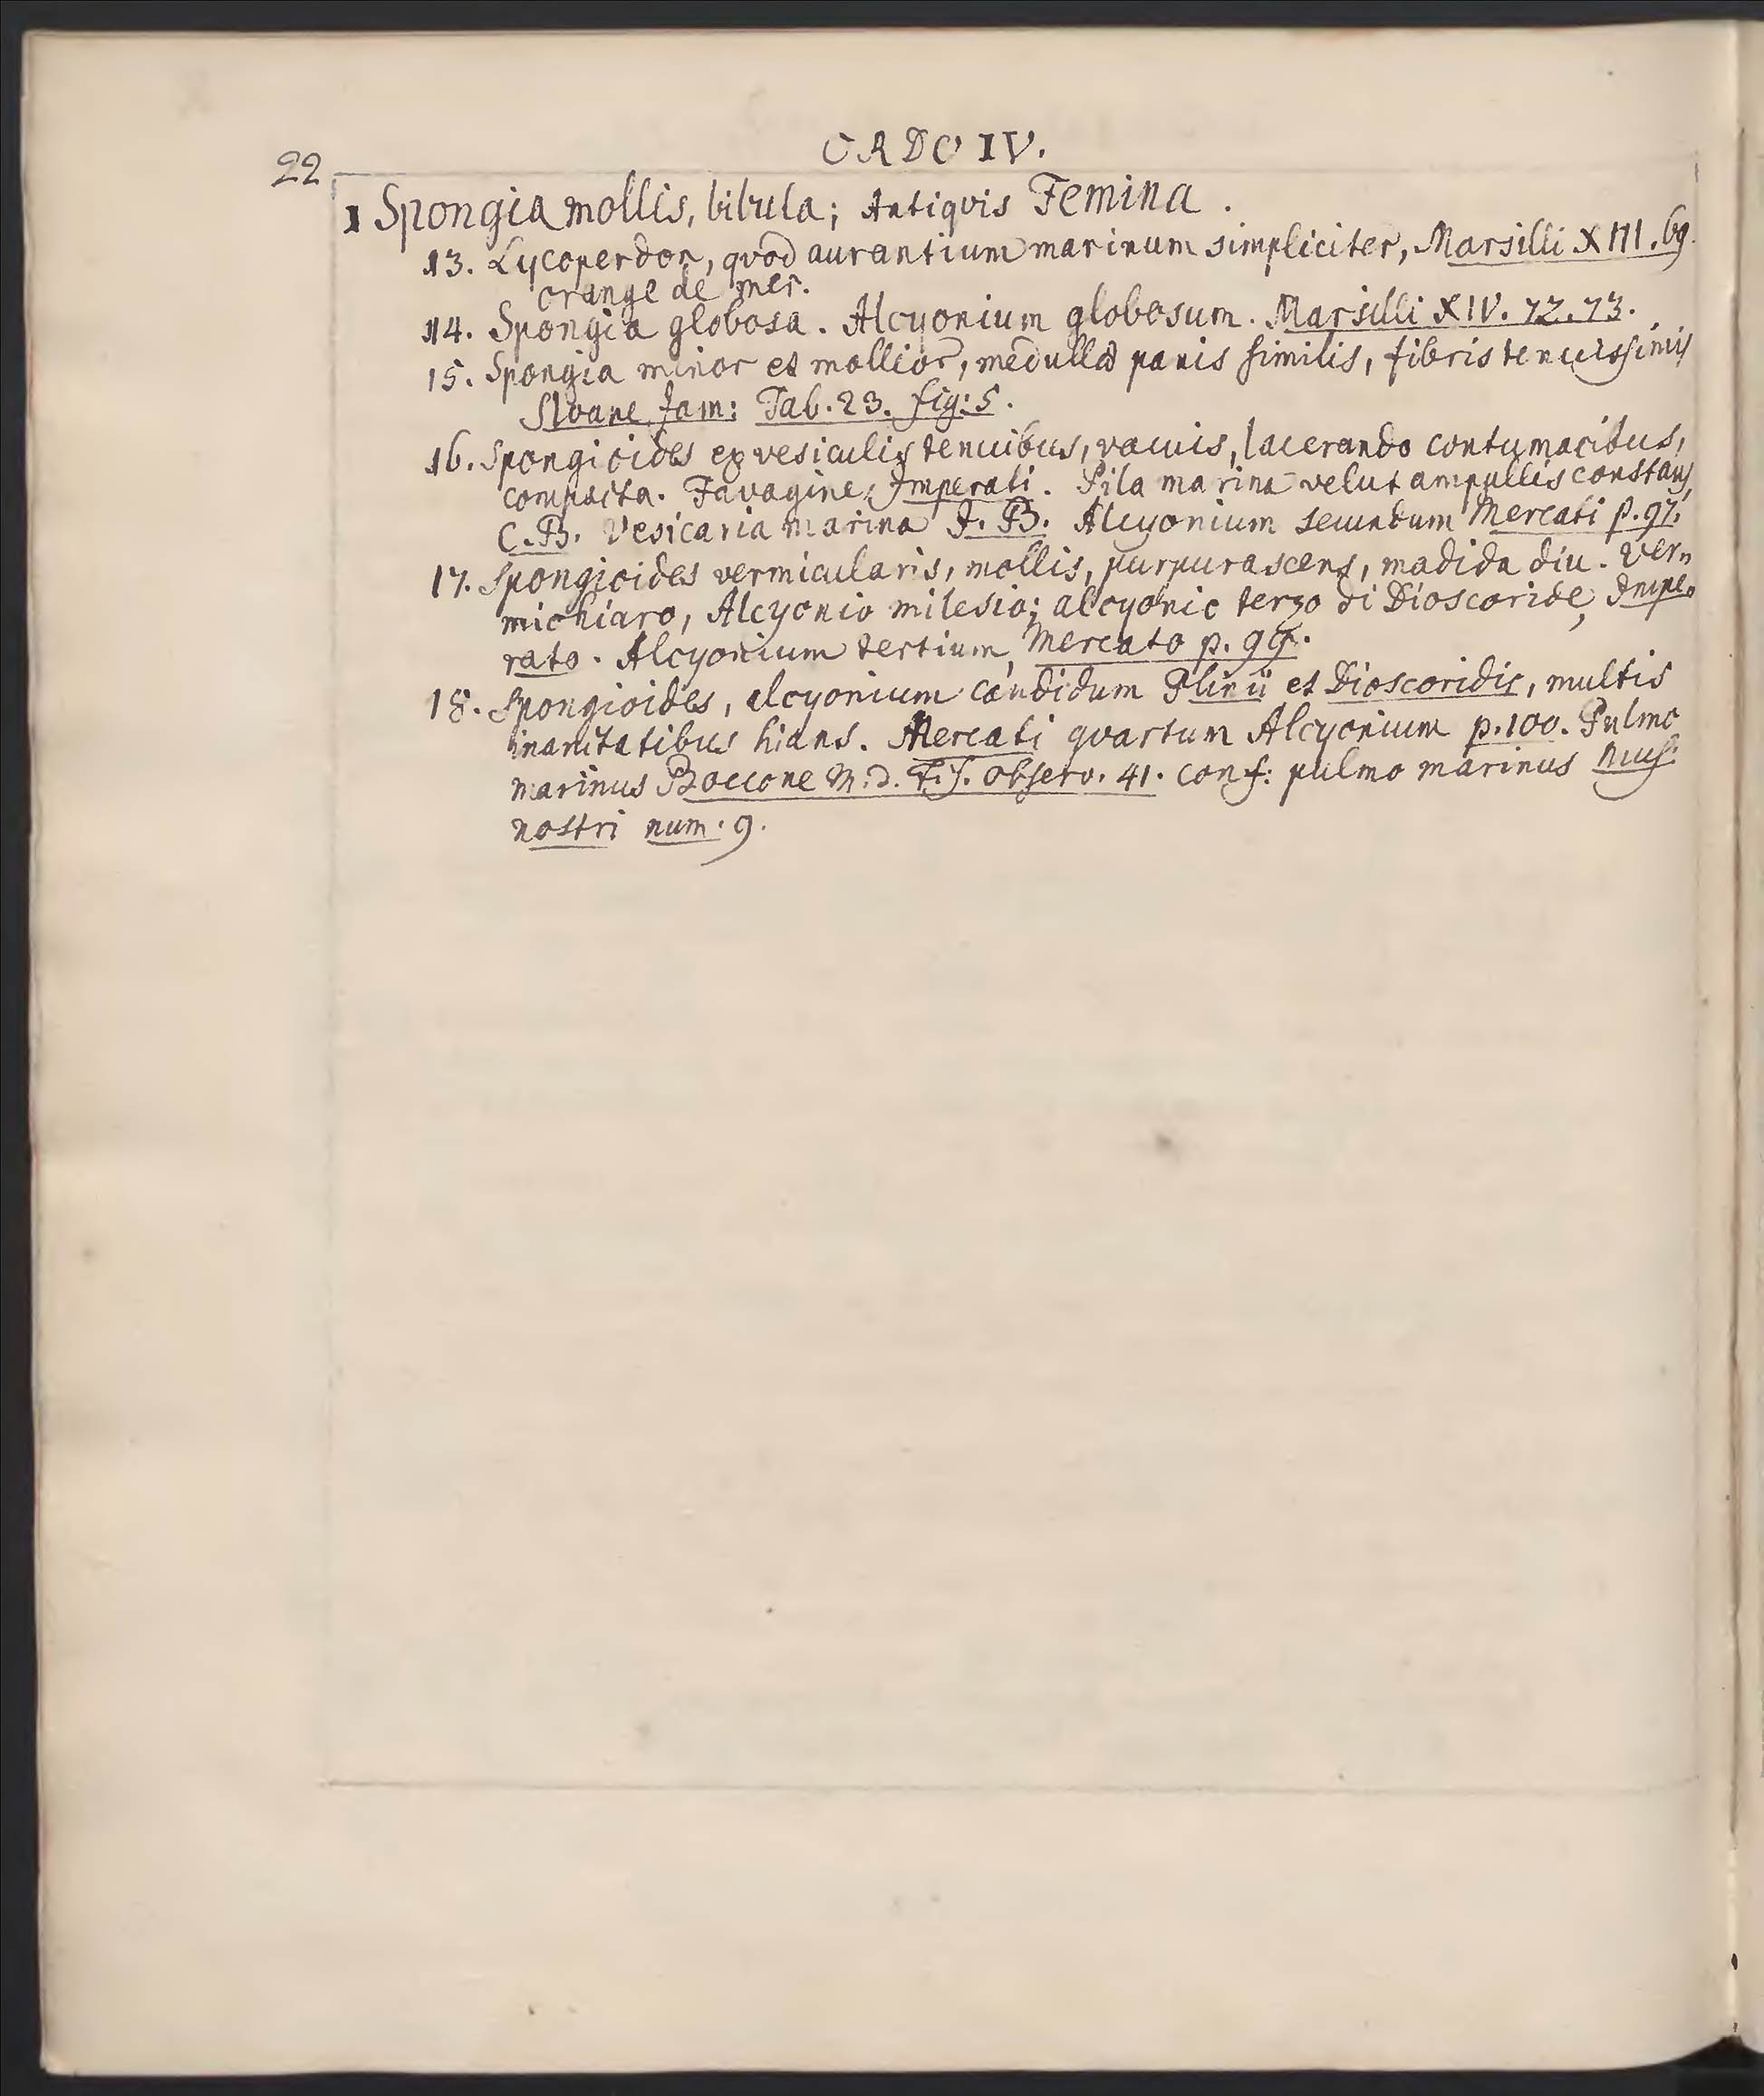 22
ORDO IV.
I Spongia mollis, bibula; Antiqvis Femina.
13. Lycoperdon, qvod aurantium marinum simpliciter, Marsilli XIII. 69.
orange de mer.
14. Spongia globosa. Alcyonium globosum. Marsilli XIV. 72. 73.
15. Spongia minor et mollior, medullæ panis similis, fibris tenuissimis
Sloane Jam: Tab. 23. fig: 5.
16. Spongioides ex vesiculis tenuibus, vacuis, lacerando contumacibus,
compacta. Favagine, Imperati. Pila marina velut ampullis constans,
C.B. Vesicaria marina J.B. Alcyonium secundum Mercati p. 97.
17. Spongioides vermicularis, mollis, purpurascens, madida diu. Ver=
michiaro, Alcyonio milesio; alcyonio terzo di Dioscoride, Impe=
rato. Alcyonium tertium, Mercato p. 99.
18. Spongioides, alcyonium candidum Plinii et Dioscoridis, multis
inanitatibus hians. Mercati qvartum Alcyonium p. 100. Pulmo
marinus Boccone M. d. Fis. observ. 41. conf: pulmo marinus Mus.
nostri num. 9.